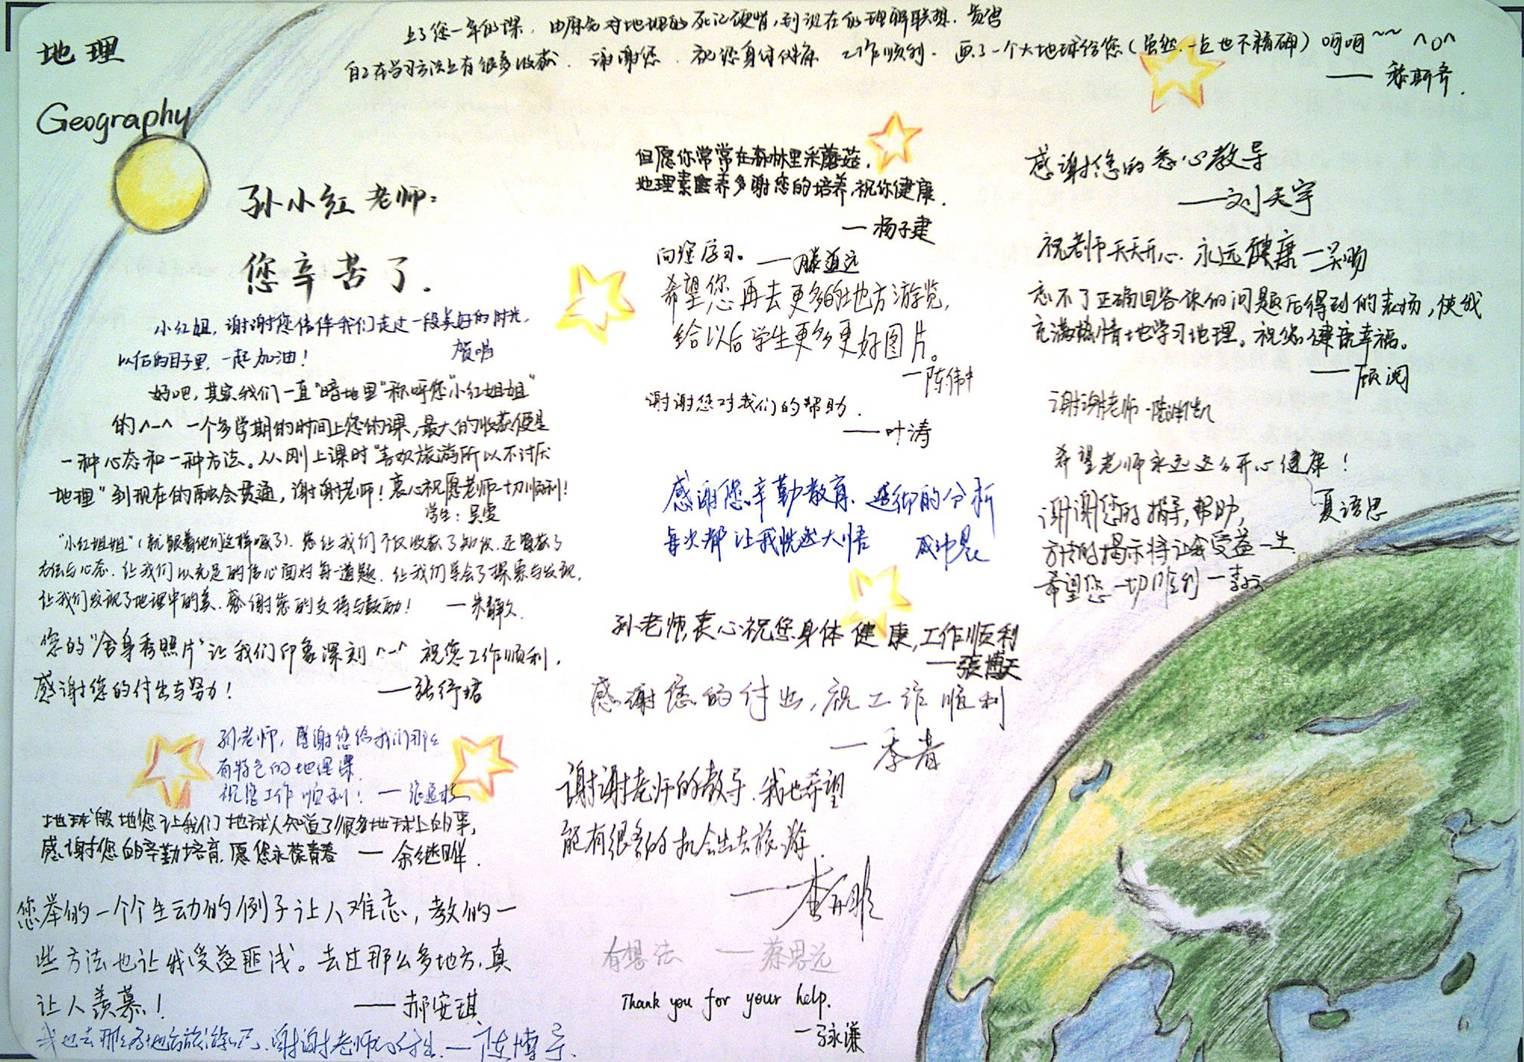 地理
Geography
上了您一年的课，由原先对地理的死记硬背，到现在的理解联想，
自己在学习方法上有很多收获．谢谢您．祝您身体健康 工作顺利．画了一个大地球给您（虽然一点也不精确）呵呵~~ ^o^
孙小红老师：
您辛苦了．
小红姐，谢谢您陪伴我们走过一段美好的时光，
以后的日子里，一起加油！
好吧，其实我们一直"暗地里"称呼您"小红姐姐"
的^-^ 一个多学期的时间上您的课，最大的收获便是
一种心态和一种方法。从刚上课时"喜欢旅游所以不讨厌
地理"到现在的融会贯通，谢谢老师！衷心祝愿老师一切顺利！
学生：吴雯
"小红姐姐"（就跟着他们这样喊了）．您让我们不仅收获了知识，还收获了
方法与心态．让我们以充足的信心面对每一道题．让我们学会了探索与发现，
让我们发现了地理中的美．感谢您的支持与鼓励！
您的"舍身秀照片"让我们印象深刻 ^-^ 祝您工作顺利，
感谢您的付出与努力！
孙老师，感谢您给我们那么
有特色的地理课
祝您工作顺利！
地球般地您让我们地球人知道了很多地球上的事，
感谢您的辛勤培育．愿您永葆青春 —余继晖．
您举的一个个生动的例子让人难忘，教的一
些方法也让我受益匪浅。去过那么多地方，真
让人羡慕！ ——郝安琪
谢谢老师的付出．—陈博宇．
但愿你常常在森林里采蘑菇．
地理素养多谢您的培养，祝你健康．
—杨子建
向您学习。—滕道远
希望您再去更多的地方游览，
给以后学生更多更好图片。
谢谢您对我们的帮助．
——叶涛
感谢您辛勤教育．透彻的分析
每次都让我恍然大悟
孙老师，衷心祝您身体健康，工作顺利
—张博天
感谢您的付出，祝工作顺利
—季青
谢谢老师的教导．我也希望
能有很多的机会出去旅游
有想法 ——蔡思远
Thank you for your help.
感谢您的悉心教导
——刘天宇
祝老师天天开心．永远健康—吴旸
忘不了正确回答你的问题后得到的表扬，使我
充满热情地学习地理。祝您健康幸福。
——顾润
谢谢老师
希望老师永远这么开心健康！
夏语思
谢谢您的指导，帮助，
方法的揭示将让我受益一生
希望您一切顺利